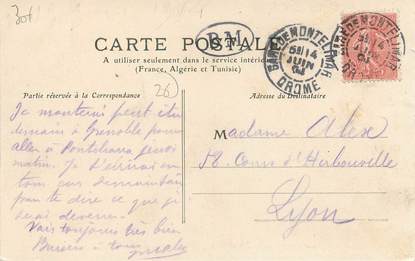 30f
CARTE POSTALE
BM
A utiliser seulement dans le service intérieur
(France, Algérie et Tunisie)
GARE DE MONTELIMAR
5E/14
JUIN
04
DROME
Partie réservée à la Correspondance
26
Adresse du Destinataire
Je monterai peut être
demain à Grenoble pour
aller à Pontcharra jeudi
matin. Je t'écrirai en
tous cas demain
pour te dire ce que je
serai devenu.
Vais toujours très bien
Baisers à tous
Madame Alex
58. Cours d'Herbouville
Lyon